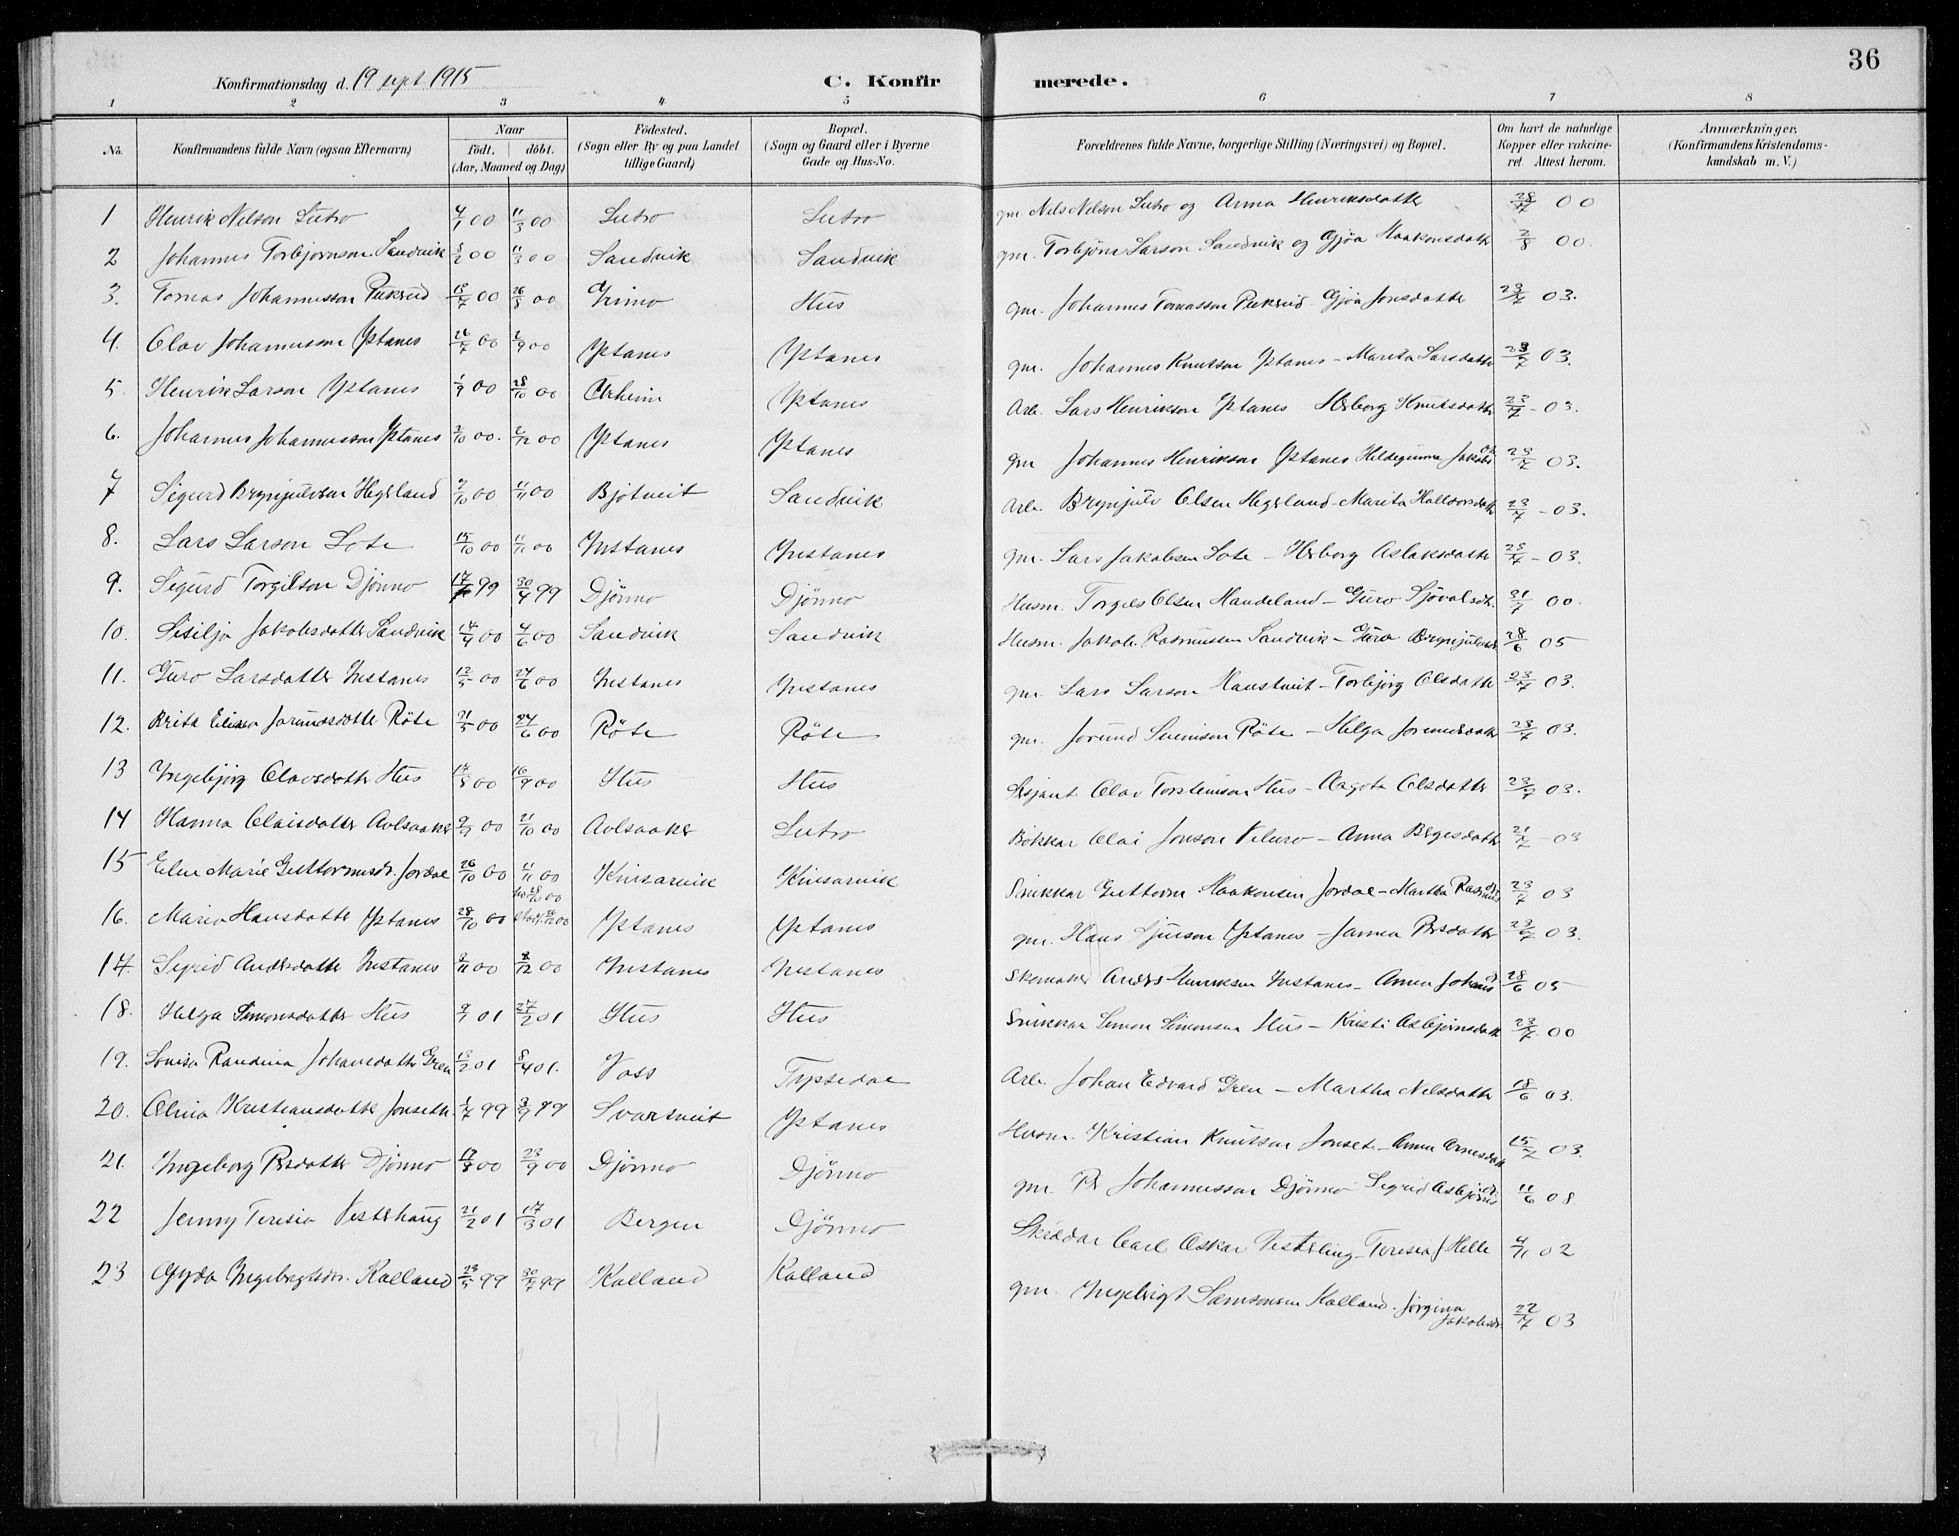 36
Konfirmationsdag d. 19 sept 1915 C. Konfirmerede.
1 2 3 4 5 6 7 8
No. Konfirmandens fulde Navn (ogsaa Efternavn) Naar födt. döbt. (Aar, Maaned og Dag) Födested. (Sogn eller By og paa Landet tillige Gaard) Bopæl. (Sogn og Gaard eller i Byerne Gade og Hus-No. Forældrenes fulde Navne, borgerlige Stilling (Næringsvei) og Bopæl. Om havt de naturlige Kopper eller vakcineret. Attest herom. Anmærkninger. (Konfirmandens Kristendomskundskab m. V.)
1 Henrik Nelson Lutro 4/1 00 11/3 00 Lutro Lutro gm Nels Nelson Lutro og Anna Henriksdatter 28/7 00
2 Johannes Torbjørnson Sandvik 5/2 00 11/3 00 Sandvik Sandvik gm. Torbjørn Larson Sandvik og Gjøa Haakonsdatter 2/8 00.
3. Tomas Johannesson 18/7 00 26/8 00 Grimo Hus gm. Johannes Tomasson Gjøa Jonsdatter 23/7 03.
4. Olav Johannesson Ystanes 26/7 00 2/9 00 Ystanes Ystanes gm. Johannes Knutson Ystanes – Marita Larsdatter 23/7 03.
5. Henrik Larson Ystanes 1/9 00 28/10 00 Ystanes Arb. Lars Henrikson Ystanes Herborg Knutsdatter 23/7 – 03.
6. Johannes Johannesson Ystanes 2/10 00. 2/12 00 Ystanes Ystanes gm Johannes Henrikson Ystanes Hildegunna Jakobsd. 23/7 03.
7 Sigurd Brynjulvson Hegrland 7/10 00 11/11 00 Bjotveit Sandvik Arb. Brynjulv Olsen Hegrland – Marita Halldorsdatter 23/7 – 03.
8. Lars Larson Lote 15/10 00 11/11 00 Instanes Instanes gm. Lars Jakobsen Lote – Herborg Aslaksdatter 23/7 – 03.
9. Sigurd Torgilson Djønno 99 30/4 99 Djönno Djönno Husm. Torgils Olsen Mandeland – Guro Sjovalsdtr. 31/7 00.
10. Sisilja Jakobsdatter Sandvik 14/4 00 4/6 00 Sandvik Sandvik Husm. Jakob Rasmussen Sandvik – Guro Brynjulvsdr. 28/6 05
11. Guro Larsdatter Instanes 12/5 00 24/6 00 Instanes Instanes gm. Lars Larson Maustveit – Torbjørg Olsdatter 23/7 03.
12. Brita Jorundsdotte Röte 21/5 00 24/6 00 Röte Röte gm. Jorund Sveinson Röte – Helga Jorundsdatter 23/7 03.
13 Ingebjörg Olavsdatter Hus 17/8 00 16/9 00 Hus Hus Sersjant Olav Torsteinson Hus – Aagota Olsdatter 23/7 03.
14 Hanna Olaisdatter Aolsaaker 9/9 00 21/10 00 Aolsaaker Lutro Bökkar Olai Jonson Velure – Anna Børgesdatter 21/7 – 03
15 Elen Marie Guttormsdr. Jordal 26/10 00 11/11 00 Kinsarvik Kinsarvik Snikkar Guttorm Haakonsen Jordal – Martha Rasmusd. 23/7 03
16. Maria Hansdatter Ystanes 28/10 00 Ystanes Ystanes gm. Hans Sjurson Ystanes – Janna Persdatter 23/7 03.
17. Sigrid Andersdatter Instanes 2/11 00 2/12 00 Instanes Instanes Skomaker Anders Henriksen Instanes – Anna Johansd 28/6 05
18. Helga Simonsdatter Hus 9/1 01 27/2 01 Hus Hus Snikkar Simon Simonsen Hus – Kristi Asbjørnsdatt 23/7 00
19. Lovisa Randina Johansdatter Gren 13/2 01 8/4 01. Voss Tyssedal Arb. Johan Edvard Gren – Martha Nelsdatter 18/6 03.
20. Olina Kristiansdatter Jonset 1/7 99 3/9 99 Svartveit Ystanes Husm. Kristian Knutson Jonset – Anna Arnesdatt 15/7 03.
21. Ingeborg Persdatter Djönno 17/8 00 23/9 00 Djönno Djönno gm. Per Johannesson Djönno Sigrid Asbjørnsdr. 11/6 08.
22 Jenny Teresia Vesterhaug 21/2 01 17/3 01 Bergen Djönno Skræddar Carl Oskar Vesterling – Teresia J Helle 4/11 02
23 Gyda Ingebrigtsdr. Kalland 23/5 99 30/7 99 Kalland Kalland gm. Ingebrigt Samsonsen Kalland. Jørgina Jakobsdr. 22/7 03